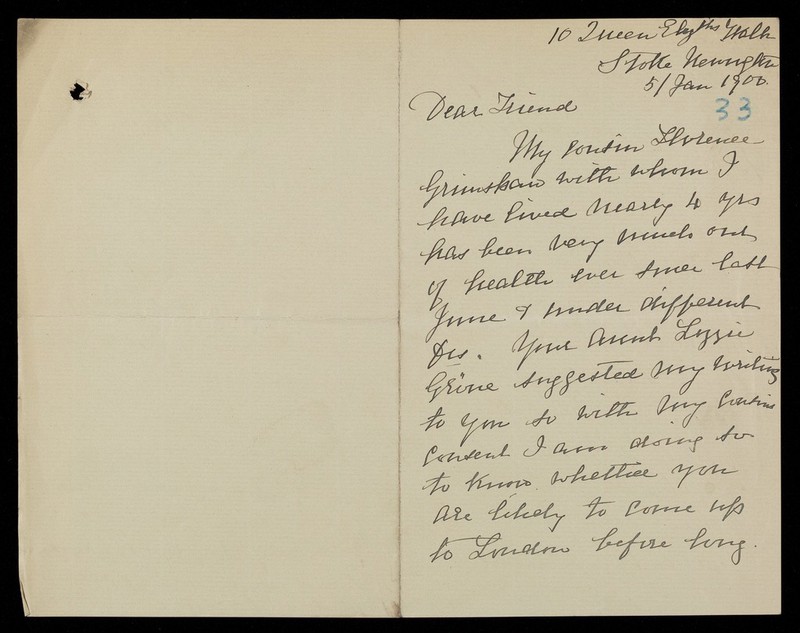 10 Queen Elizths Walk
Stoke Newington
5/Jan 1900.
33
Dear Friend
My cousin Florence
Grimshaw with whom I
have lived nearly 4 yrs
has been very much out
of health ever since last
June & under different
Drs. Your Aunt Lizzie
Grüne suggested my writing
to you so with my Cousins
consent I am doing so
to know whether you
are likely to come up
to London before long.